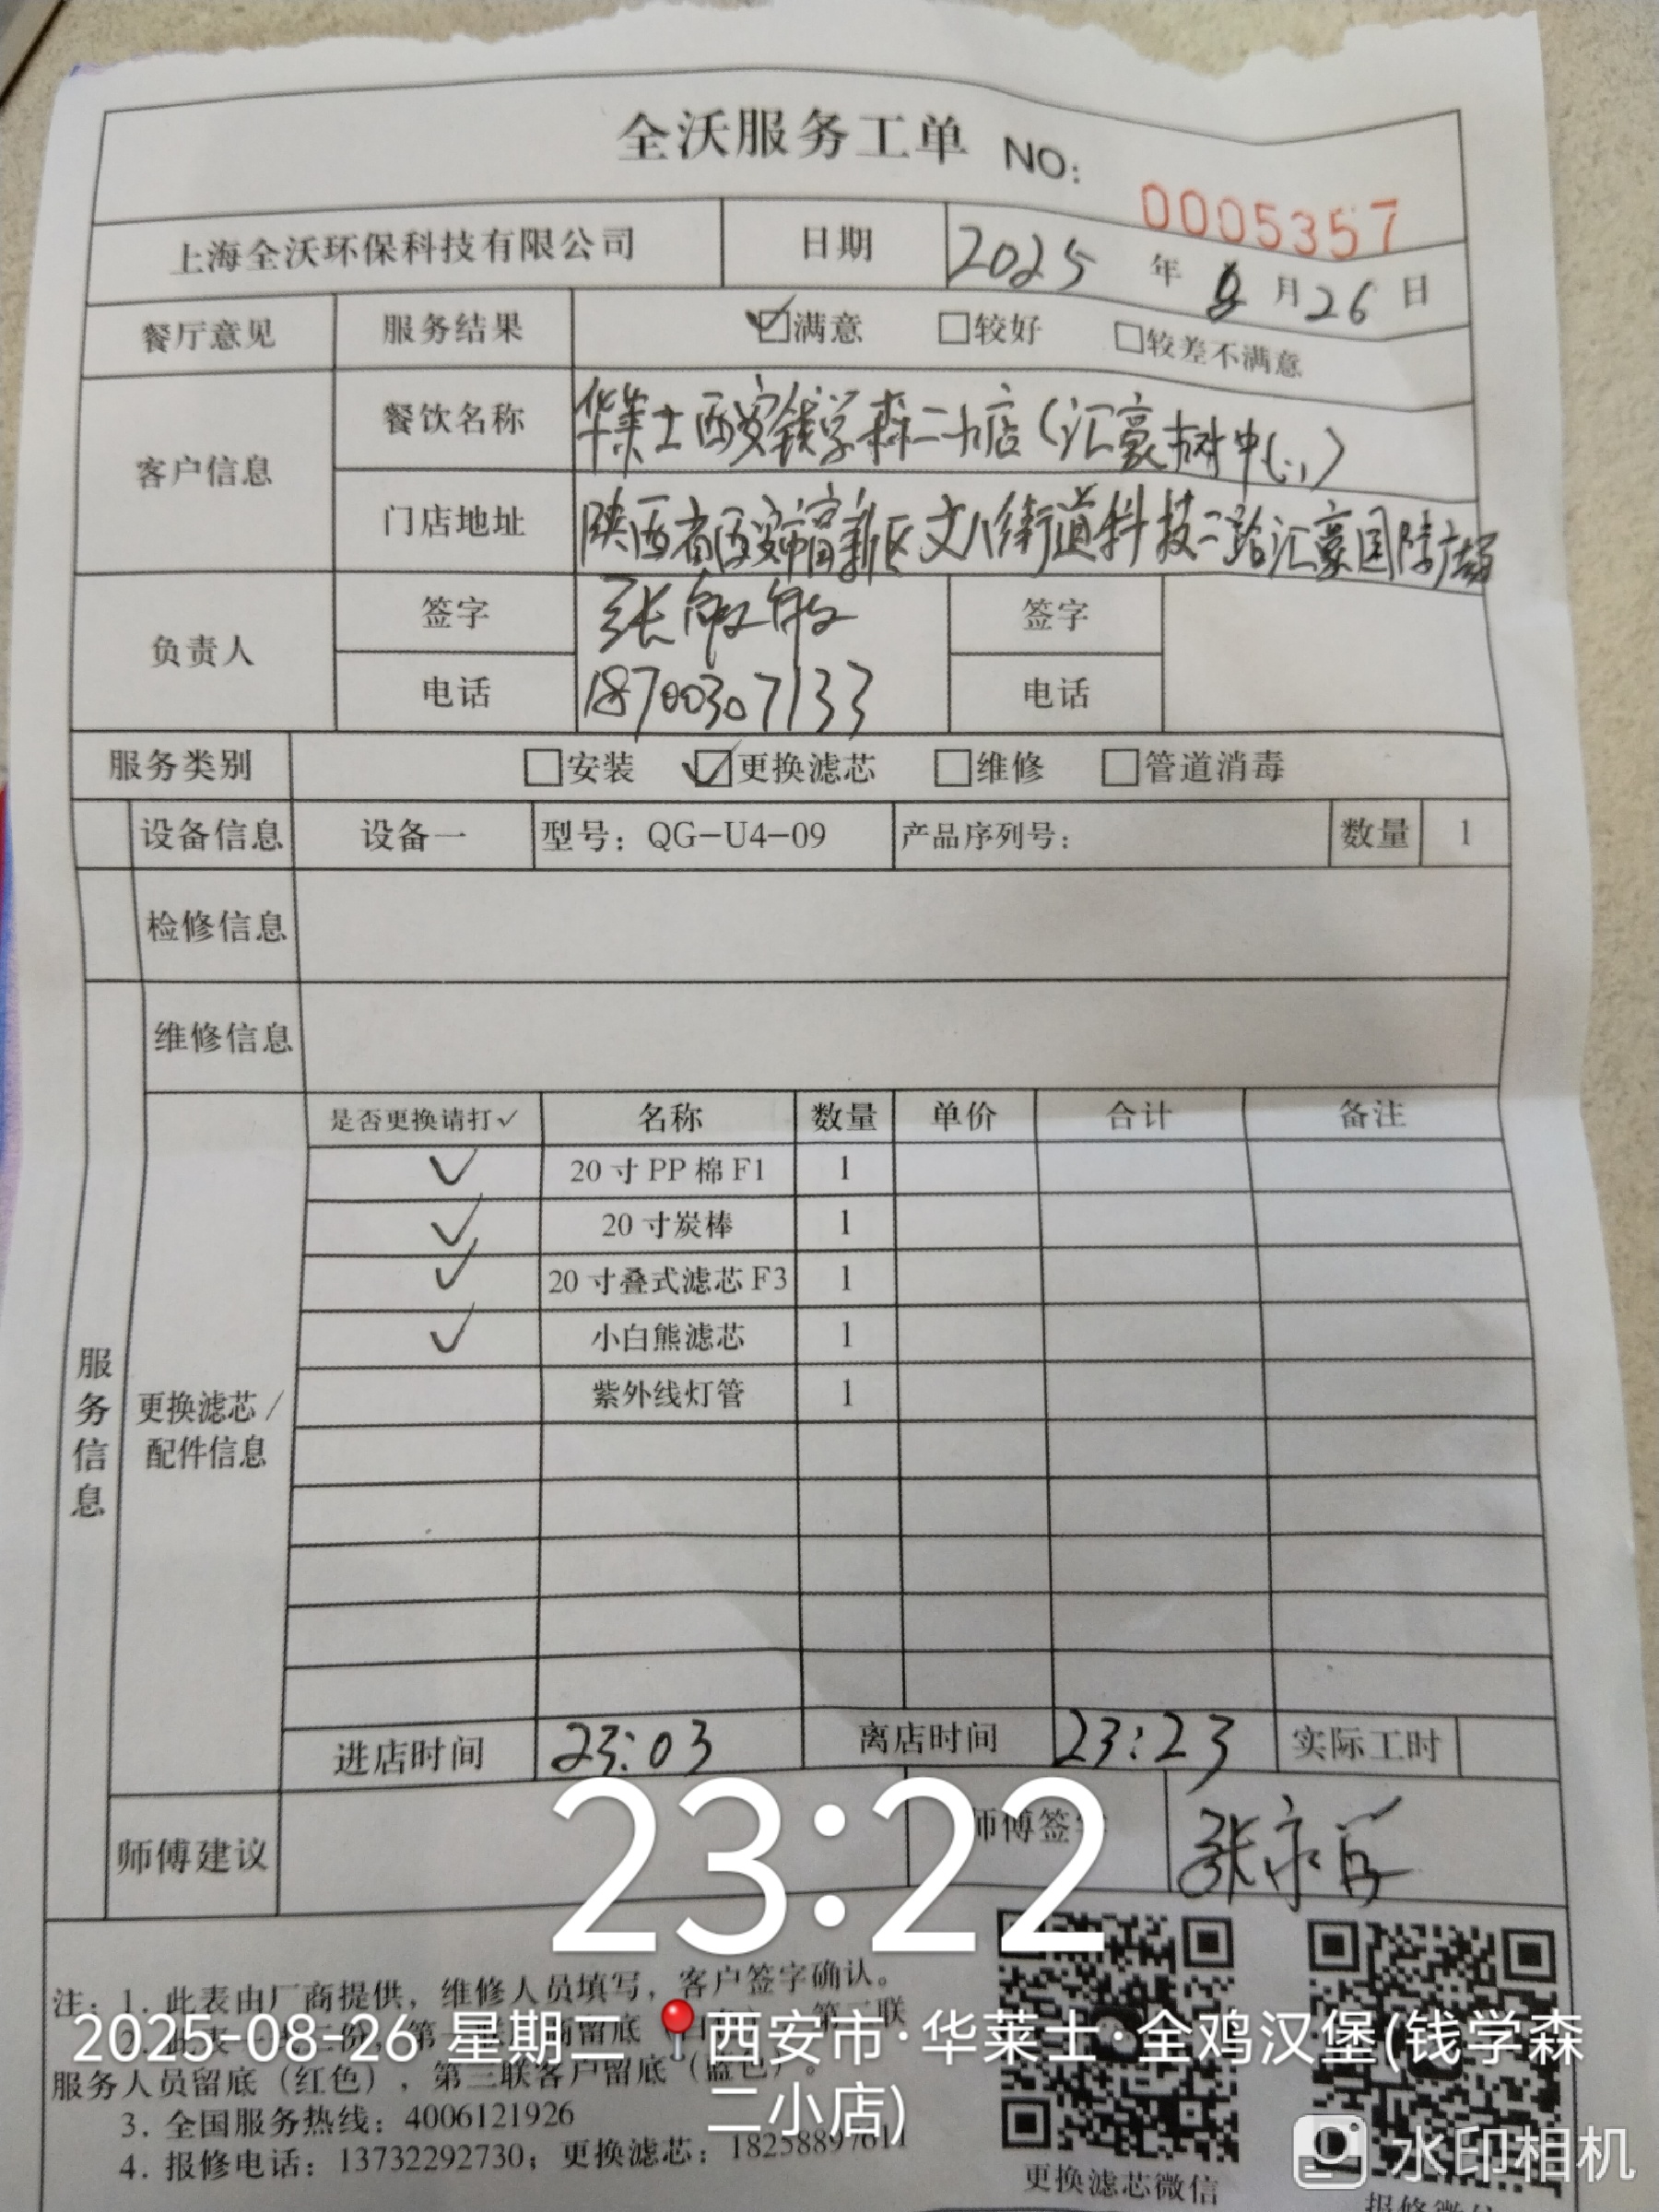 全沃服务工单 NO: 0005357
上海全沃环保科技有限公司 日期 2025 年 8 月 26 日
餐厅意见 服务结果 ☑满意 □较好 □较差不满意
客户信息 餐饮名称 华莱士西安钱学森二小店(汇豪树中心)
门店地址 陕西省西安市高新区丈八街道科技二路汇豪国际广场
负责人 签字 张敏敏 签字
电话 18700307133 电话
服务类别 □安装 ☑更换滤芯 □维修 □管道消毒
设备信息 设备一 型号：QG-U4-09 产品序列号： 数量 1
检修信息
维修信息
服务信息
更换滤芯/配件信息
是否更换请打✓ 名称 数量 单价 合计 备注
✓ 20寸PP棉F1 1
✓ 20寸炭棒 1
✓ 20寸叠式滤芯F3 1
✓ 小白熊滤芯 1
紫外线灯管 1
进店时间 23:03 离店时间 23:23 实际工时
师傅建议 师傅签字 张永
23:22
注：1. 此表由厂商提供，维修人员填写，客户签字确认。
2. 此表一式三份，第一联厂商留底（白色），第二联
2025-08-26 星期二 西安市·华莱士·全鸡汉堡(钱学森
二小店)
服务人员留底（红色），第三联客户留底（蓝色）。
3. 全国服务热线：4006121926
4. 报修电话：13732292730；更换滤芯：18258897611
更换滤芯微信
报修微信
水印相机